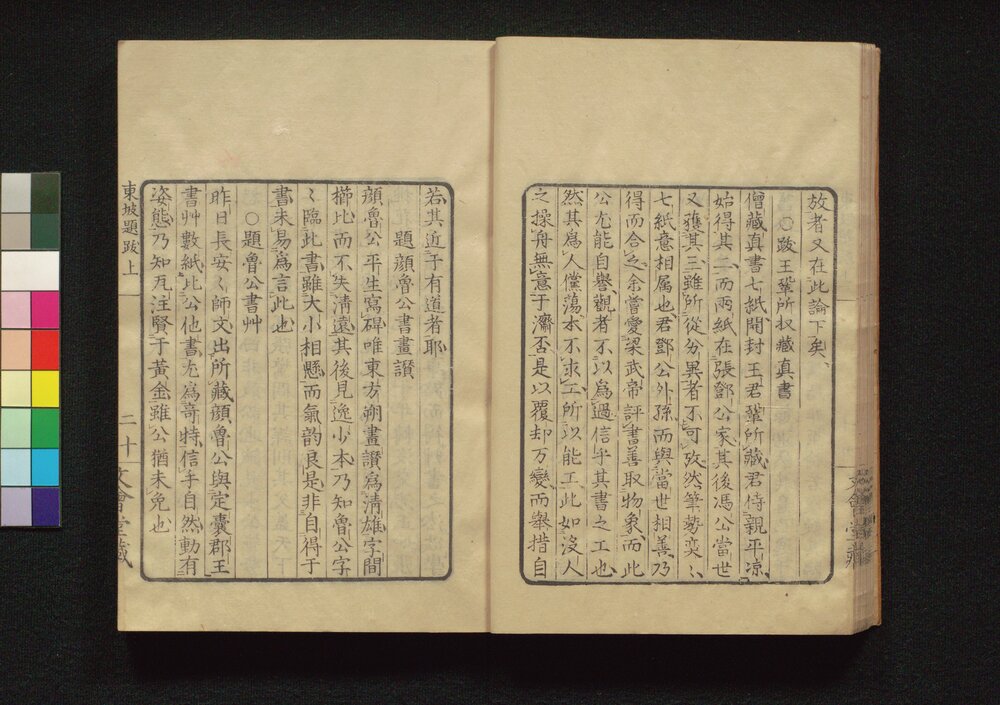 放者又在此論下矣
○跋王鞏所収藏真書
僧藏真書七紙開封王君鞏所藏君侍親平凉
始得其二而兩紙在張鄧公家其後馮公當世
又獲其三雖所從分異者不可攷然筆勢奕〻
七紙意相属也君鄧公外孫而與當世相善乃
得而合之余嘗愛梁武帝評書善取物象而此
公尤能自譽觀者不以為過信乎其書之工也
然其為人儻蕩本不求工所以能工此如沒人
之操舟無意于濟否是以覆却万變而舉措自
若其近于有道者耶
題顔魯公書畫讃
顔魯公平生寫碑唯東方朔畫讃為清雄字間
櫛比而不失清遠其後見逸少本乃知魯公字
〻臨此書雖大小相懸而氣韵良是非自得于
書未易為言此也
○題魯公書艸
昨日長安〻師文出所藏顔魯公與定襄郡王
書艸數紙比公他書尤為竒特信手自然動有
姿態乃知瓦注賢于黄金雖公猶未免也
東坡題跋上
二十
文會堂藏